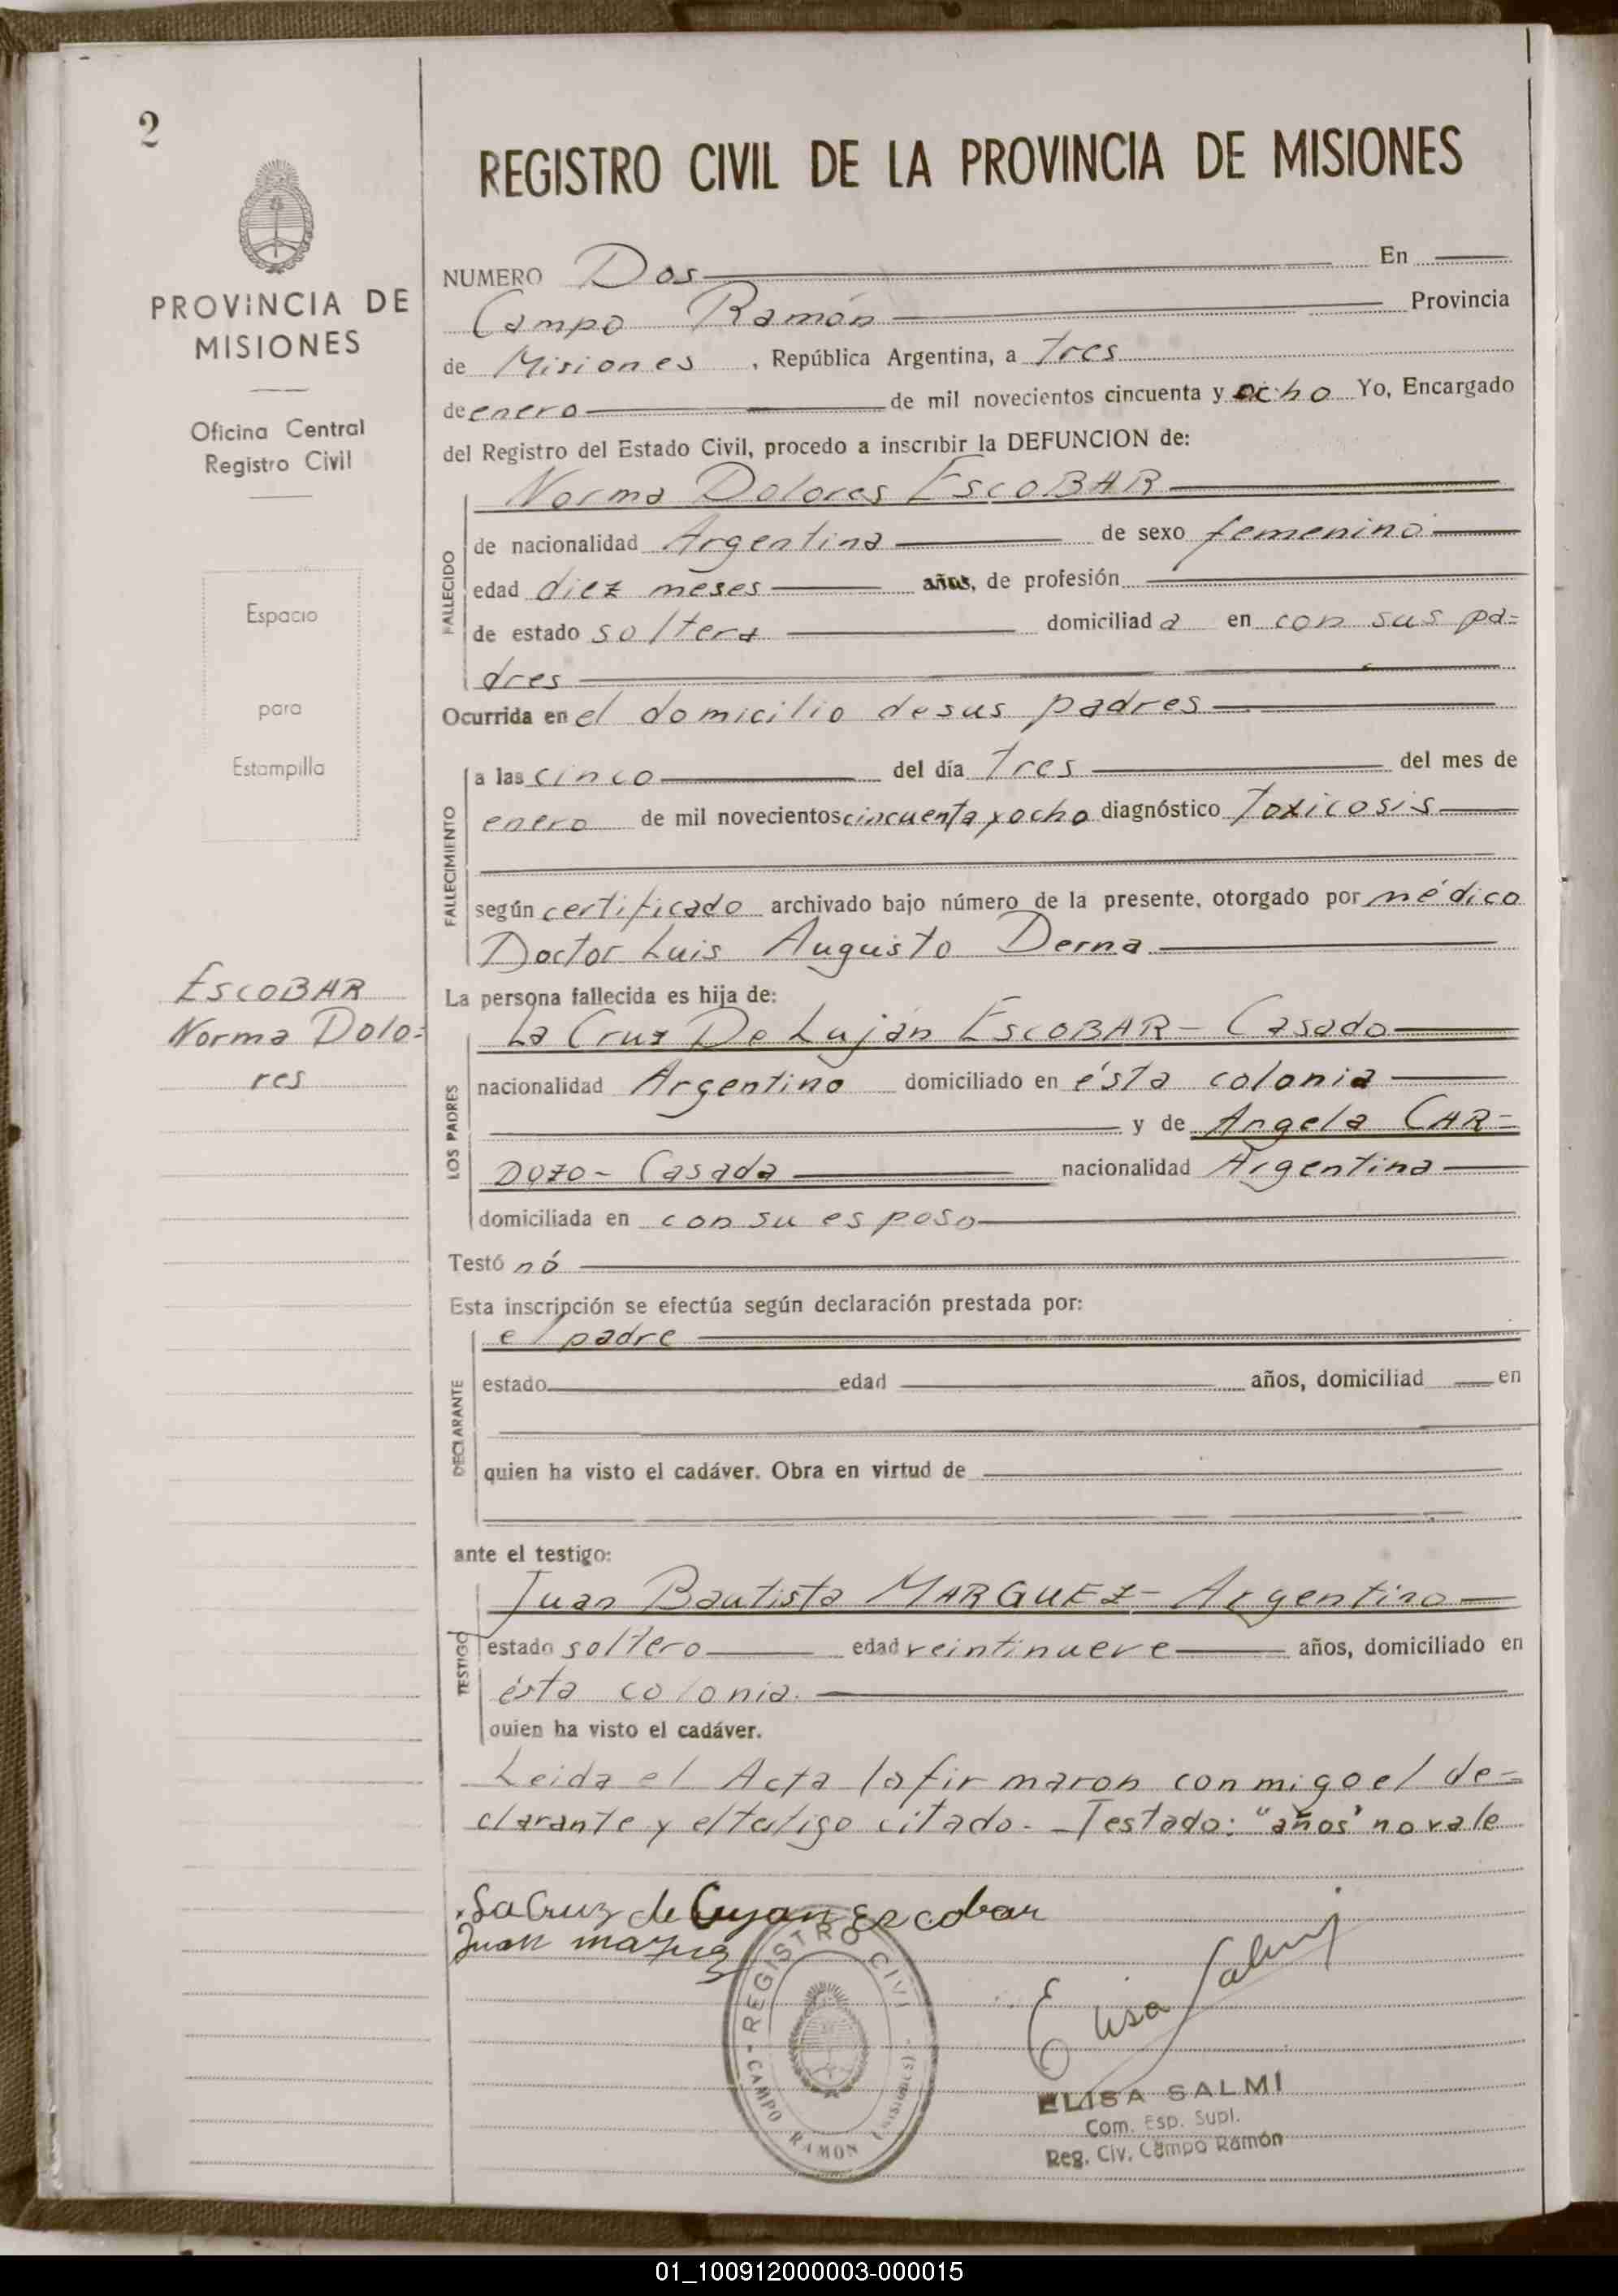 2
PROVINCIA DE
MISIONES
Oficina Central
Registro Civil
Espacio
para
Estampilla
ESCOBAR
Norma Dolo=
res
REGISTRO CIVIL DE LA PROVINCIA DE MISIONES
NUMERO Dos En
Campo Ramón Provincia
de Misiones, República Argentina, a Tres
de enero de mil novecientos cincuenta y ocho Yo, Encargado
del Registro del Estado Civil, procedo a inscribir la DEFUNCION de:
FALLECIDO
Norma Dolores ESCOBAR
de nacionalidad Argentina de sexo femenino
edad diez meses años, de profesión
de estado soltera domiciliad a en con sus pa=
dres
Ocurrida en el domicilio de sus padres
FALLECIMIENTO
a las cinco del día Tres del mes de
enero de mil novecientos cincuenta y ocho diagnóstico Toxicosis
según certificado archivado bajo número de la presente, otorgado por médico
Doctor Luis Augusto Derna
La persona fallecida es hija de:
LOS PADRES
La Cruz De Luján ESCOBAR - Casado
nacionalidad Argentino domiciliado en ésta colonia
y de Angela CAR=
DOZO - Casada nacionalidad Argentina
domiciliada en con su esposo
Testó nó
Esta inscripción se efectúa según declaración prestada por:
DECLARANTE
el padre
estado edad años, domiciliad en
quien ha visto el cadáver. Obra en virtud de
ante el testigo:
TESTIGO
Juan Bautista MARQUEZ - Argentino
estado soltero edad veintinueve años, domiciliado en
ésta colonia.
quien ha visto el cadáver.
Leida el Acta la firmaron conmigo el de=
clarante y el testigo citado. - Testado: "años" no vale
La Cruz de Lujan Escobar
Juan
REGISTRO CIVIL
- CAMPO RAMON (MISIONES) -
Elisa Salmi
ELISA SALMI
Com. Esp. Supl.
Reg. Civ. Campo Ramón
01_100912000003-000015